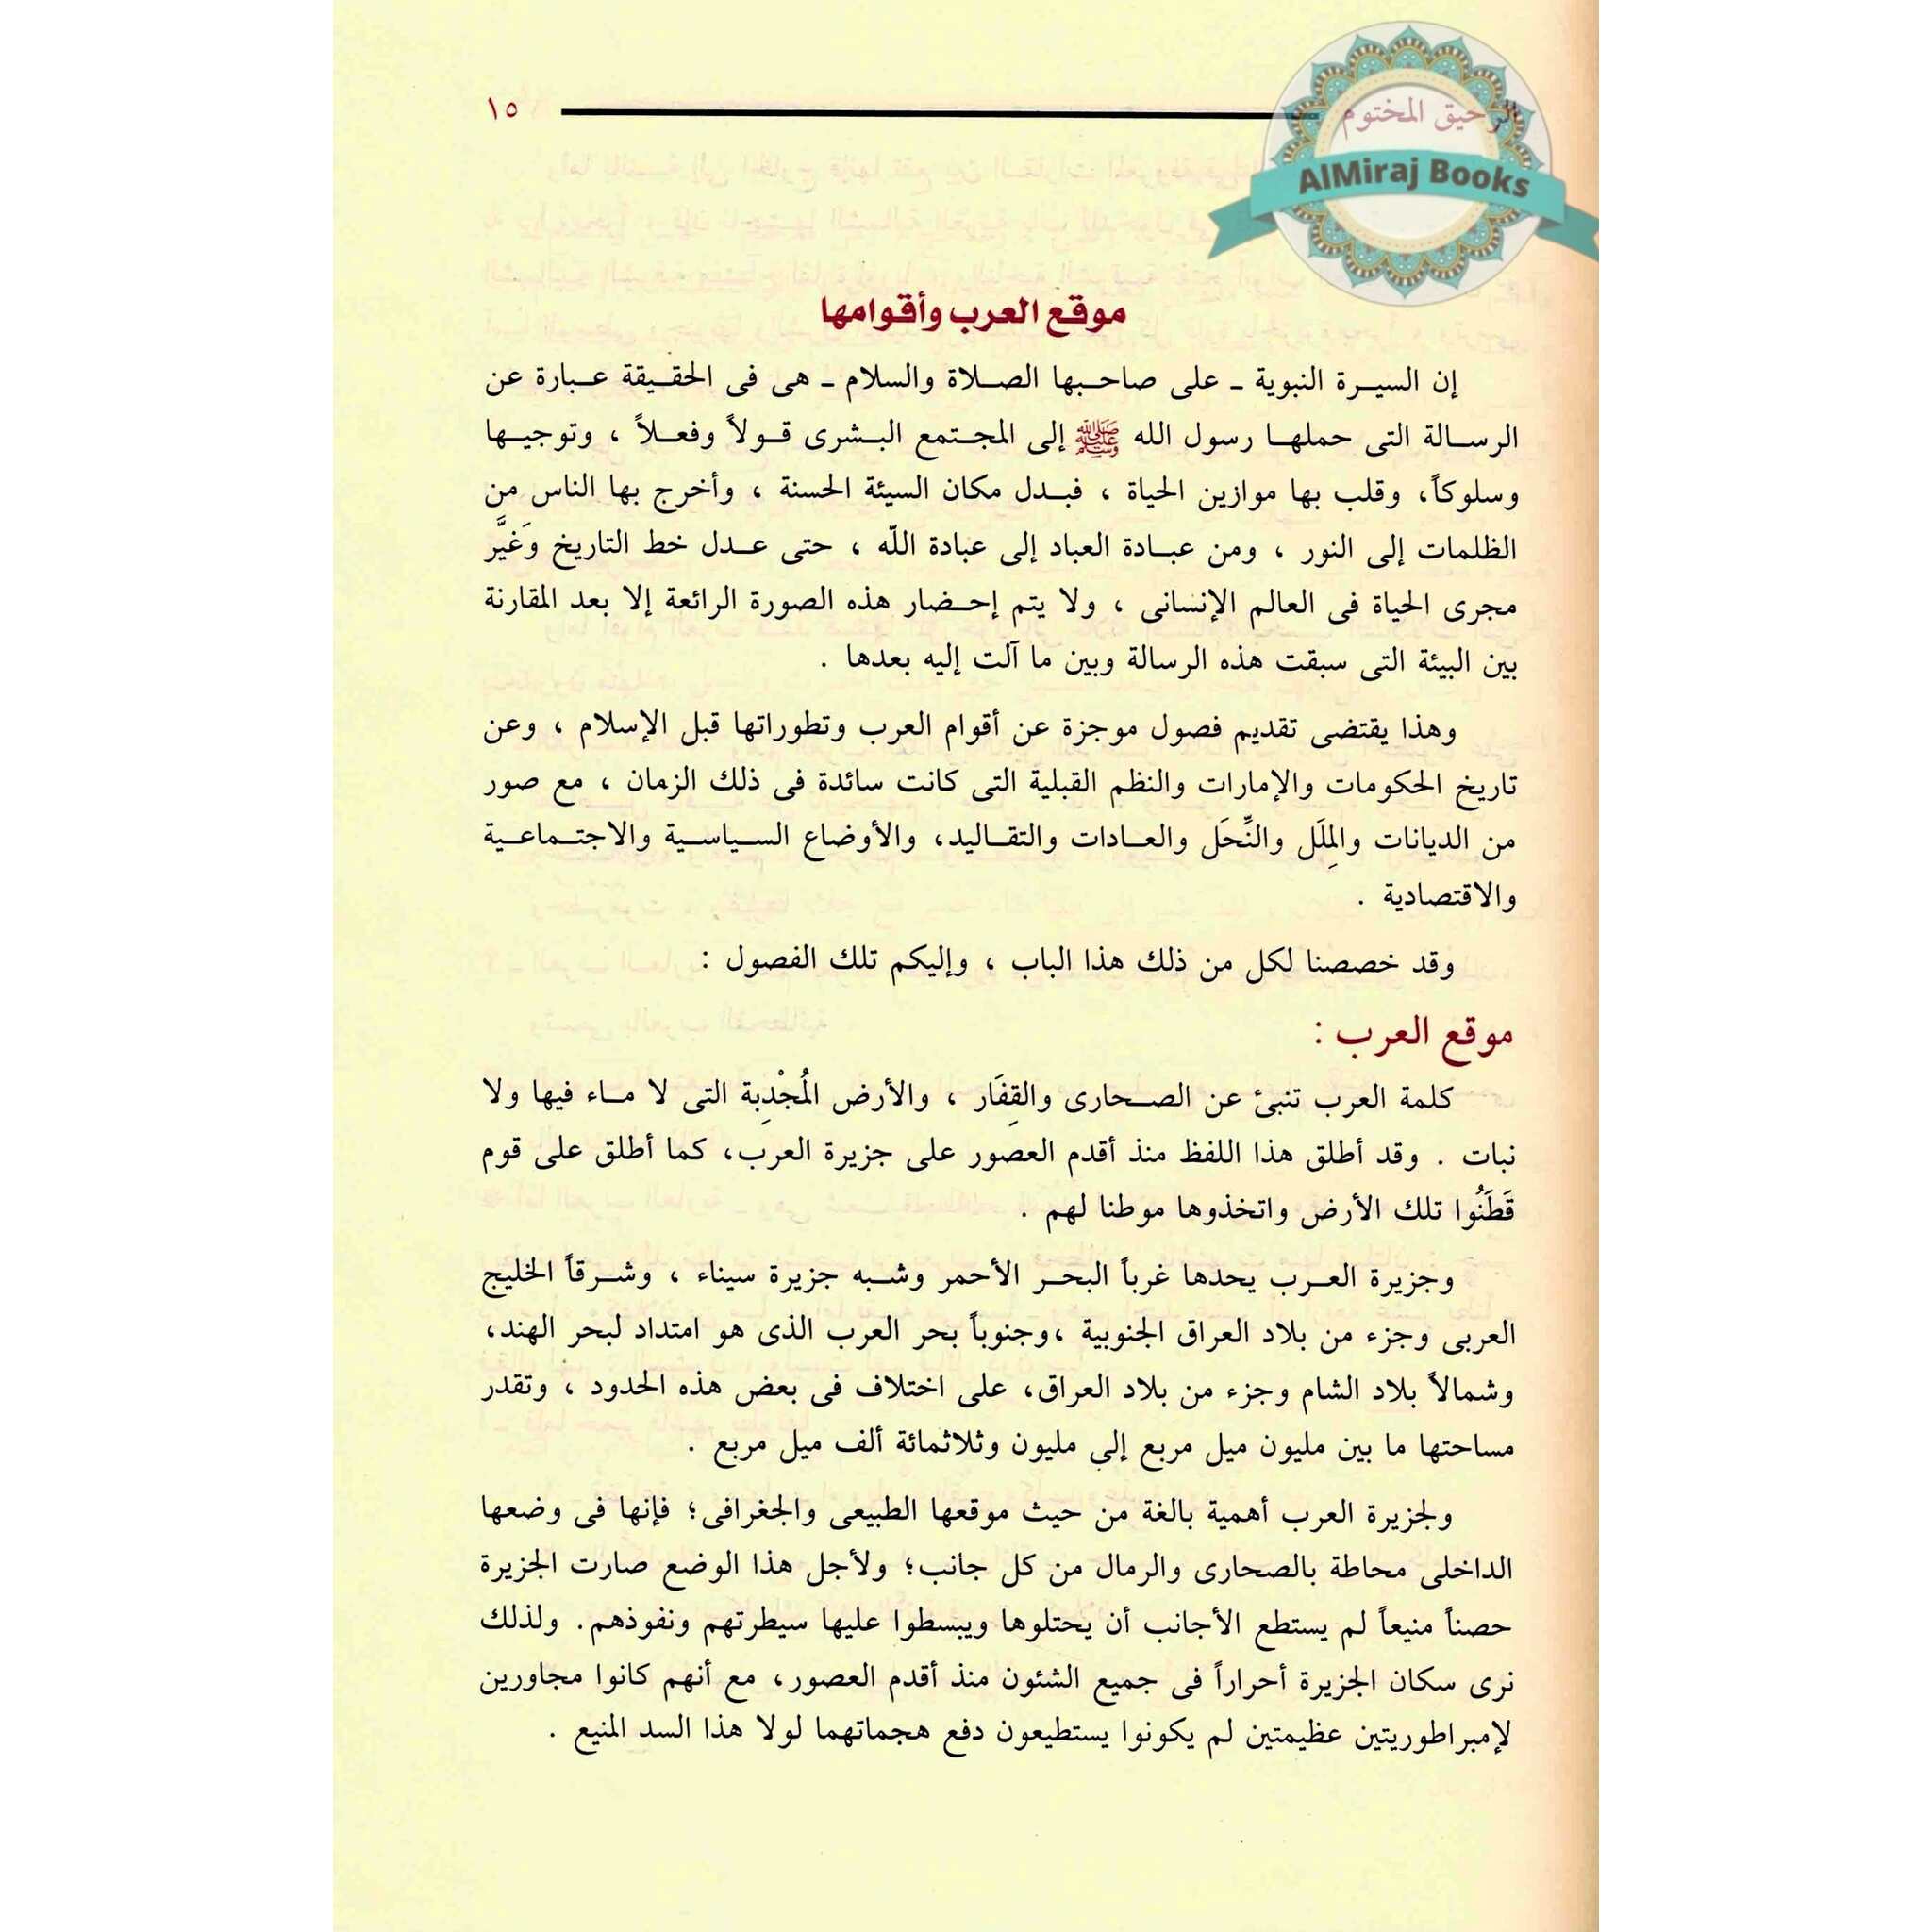 الرحيق المختوم
١٥
AlMiraj Books
موقع العرب وأقوامها
إن السيرة النبوية ـ على صاحبها الصلاة والسلام ـ هى فى الحقيقة عبارة عن
الرسالة التى حملها رسول الله ﷺ إلى المجتمع البشرى قولاً وفعلاً ، وتوجيها
وسلوكاً، وقلب بها موازين الحياة ، فبدل مكان السيئة الحسنة ، وأخرج بها الناس من
الظلمات إلى النور ، ومن عبادة العباد إلى عبادة اللّه ، حتى عدل خط التاريخ وَغيَّر
مجرى الحياة فى العالم الإنسانى ، ولا يتم إحضار هذه الصورة الرائعة إلا بعد المقارنة
بين البيئة التى سبقت هذه الرسالة وبين ما آلت إليه بعدها .
وهذا يقتضى تقديم فصول موجزة عن أقوام العرب وتطوراتها قبل الإسلام ، وعن
تاريخ الحكومات والإمارات والنظم القبلية التى كانت سائدة فى ذلك الزمان ، مع صور
من الديانات والمِلَل والنِّحَل والعادات والتقاليد، والأوضاع السياسية والاجتماعية
والاقتصادية .
وقد خصصنا لكل من ذلك هذا الباب ، وإليكم تلك الفصول :
موقع العرب :
كلمة العرب تنبئ عن الصحارى والقِفَار ، والأرض المُجْدِبة التى لا ماء فيها ولا
نبات . وقد أطلق هذا اللفظ منذ أقدم العصور على جزيرة العرب، كما أطلق على قوم
قَطَنُوا تلك الأرض واتخذوها موطنا لهم .
وجزيرة العرب يحدها غرباً البحر الأحمر وشبه جزيرة سيناء ، وشرقاً الخليج
العربى وجزء من بلاد العراق الجنوبية ،وجنوباً بحر العرب الذى هو امتداد لبحر الهند،
وشمالاً بلاد الشام وجزء من بلاد العراق، على اختلاف فى بعض هذه الحدود ، وتقدر
مساحتها ما بين مليون ميل مربع إلى مليون وثلاثمائة ألف ميل مربع .
ولجزيرة العرب أهمية بالغة من حيث موقعها الطبيعى والجغرافى؛ فإنها فى وضعها
الداخلى محاطة بالصحارى والرمال من كل جانب؛ ولأجل هذا الوضع صارت الجزيرة
حصناً منيعاً لم يستطع الأجانب أن يحتلوها ويبسطوا عليها سيطرتهم ونفوذهم. ولذلك
نرى سكان الجزيرة أحراراً فى جميع الشئون منذ أقدم العصور، مع أنهم كانوا مجاورين
لإمبراطوريتين عظيمتين لم يكونوا يستطيعون دفع هجماتهما لولا هذا السد المنيع .